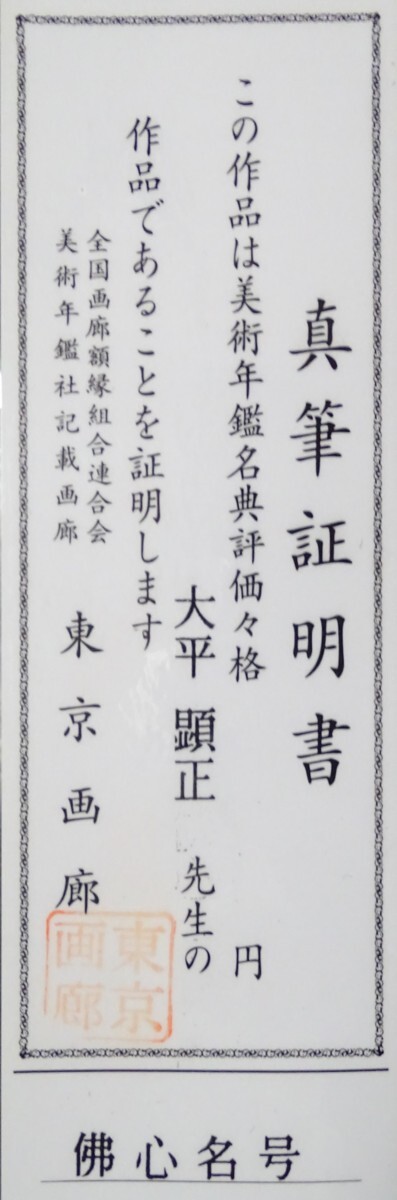 真筆証明書
この作品は美術年鑑名典評価々格 円
大平 顕正 先生の
作品であることを証明します
全国画廊額縁組合連合会
美術年鑑社記載画廊
東京画廊
東京
画廊
佛心名号